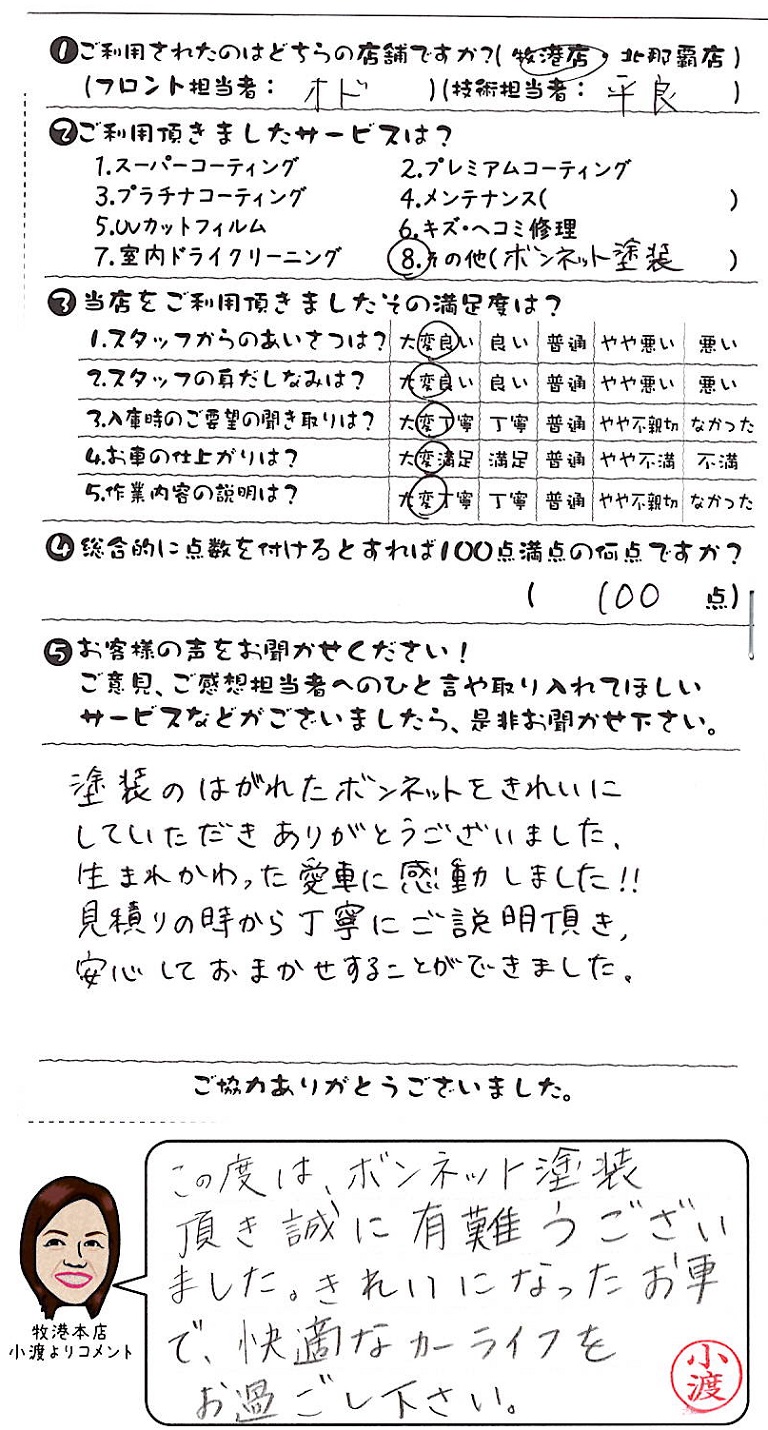 ❶ご利用されたのはどちらの店舗ですか?(牧港店・北那覇店)
(フロント担当者: オド )(技術担当者: 平良 )
❷ご利用頂きましたサービスは?
1.スーパーコーティング 2.プレミアムコーティング
3.プラチナコーティング 4.メンテナンス( )
5.UVカットフィルム 6.キズ・ヘコミ修理
7.室内ドライクリーニング 8.その他(ボンネット塗装 )
❸当店をご利用頂きましたその満足度は?
1.スタッフからのあいさつは? 大変良い 良い 普通 やや悪い 悪い
2.スタッフの身だしなみは? 大変良い 良い 普通 やや悪い 悪い
3.入庫時のご要望の聞き取りは? 大変丁寧 丁寧 普通 やや不親切 なかった
4.お車の仕上がりは? 大変満足 満足 普通 やや不満 不満
5.作業内容の説明は? 大変丁寧 丁寧 普通 やや不親切 なかった
❹総合的に点数を付けるとすれば100点満点の何点ですか?
( 100 点)
❺お客様の声をお聞かせください!
ご意見、ご感想担当者へのひと言や取り入れてほしい
サービスなどがございましたら、是非お聞かせ下さい。
塗装のはがれたボンネットをきれいに
していただきありがとうございました、
生まれかわった愛車に感動しました!!
見積りの時から丁寧にご説明頂き、
安心しておまかせすることができました。
ご協力ありがとうございました。
この度は、ボンネット塗装
頂き誠に有難うござい
ました。きれいになったお車
で、快適なカーライフを
お過ごし下さい。
小渡
牧港本店
小渡よりコメント